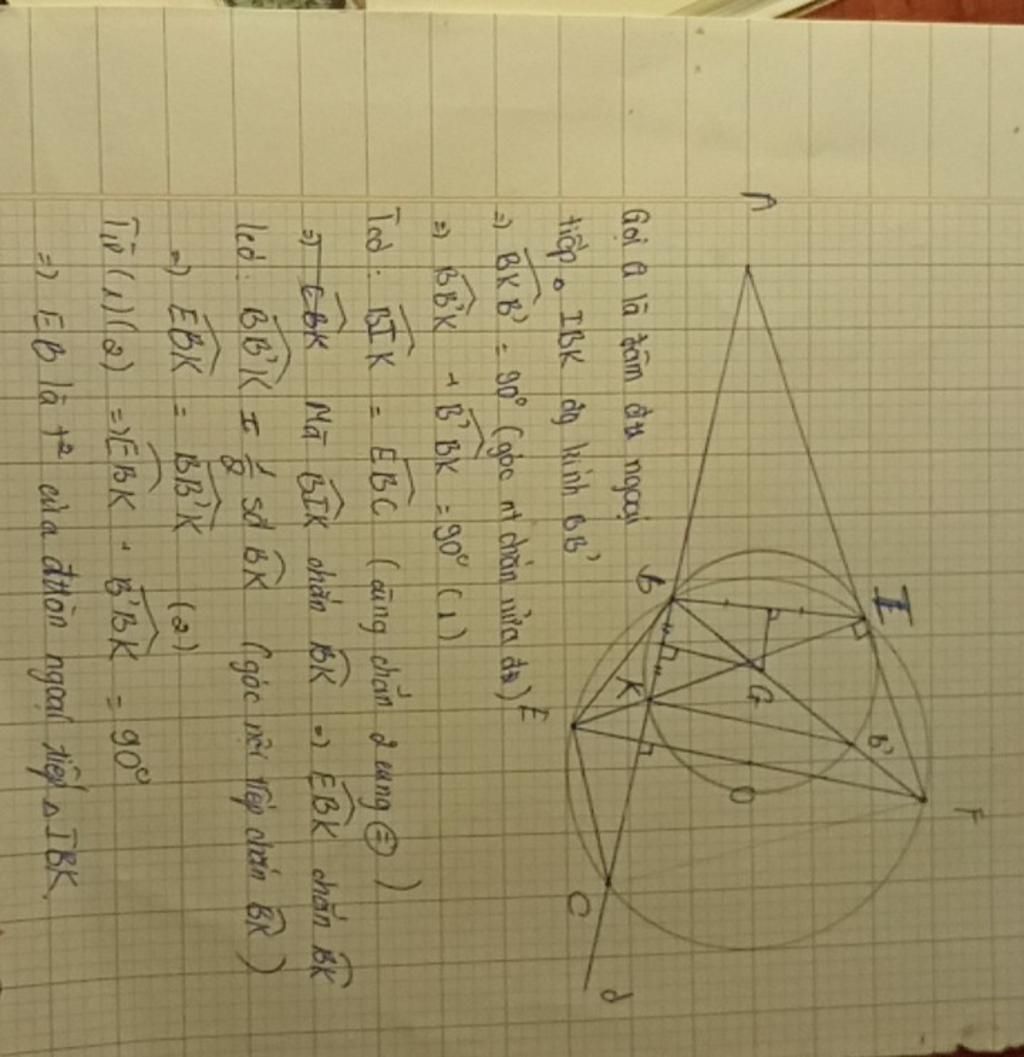 A
I
F
B
G
B'
O
K
E
C
d
Gọi G là tâm đtr ngoại
tiếp △ IBK đg kính BB'
=> BKB' = 90° (góc nt chắn nửa đtr)
=> BB'K + B'BK = 90° (1)
Tcó : BIK = EBC (cùng chắn 2 cung = )
=> EBK Mà BIK chắn BK => EBK chắn BK
Tcó : BB'K = 1/2 sđ BK (góc nội tiếp chắn BK)
=> EBK = BB'K (2)
Từ (1)(2) => EBK + B'BK = 90°
=> EB là t² của đtròn ngoại tiếp △ IBK.